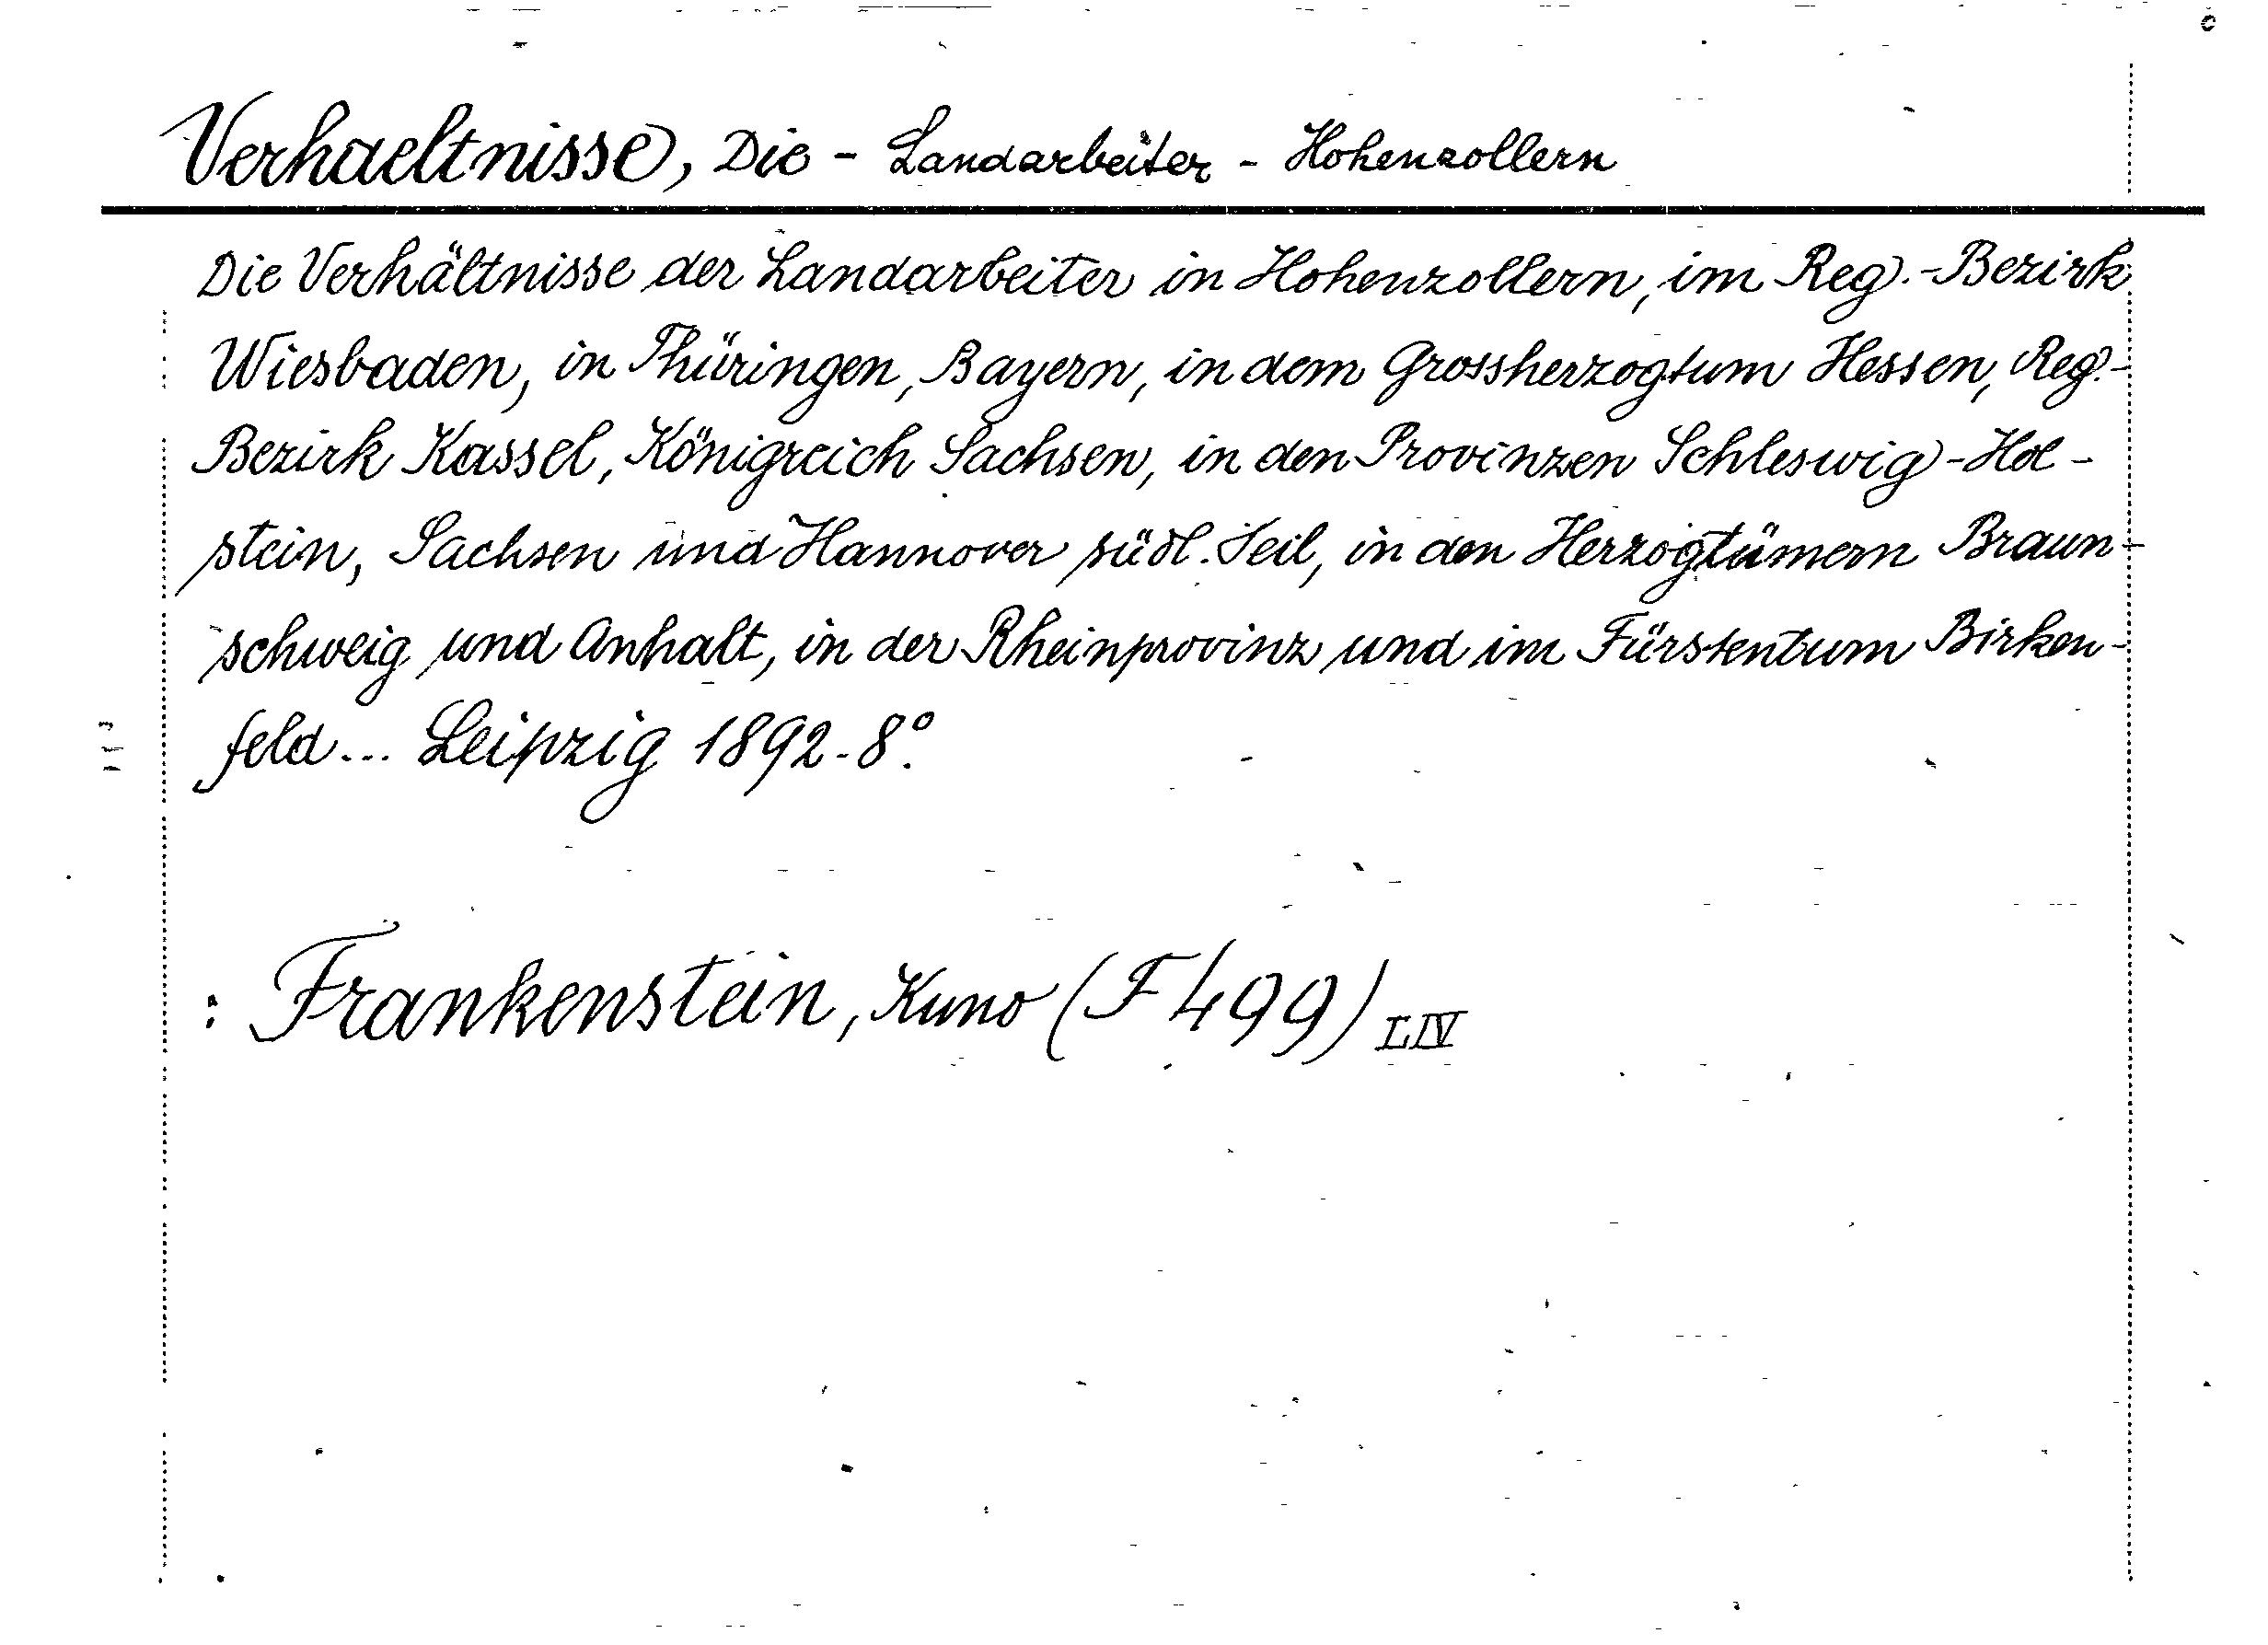 Verhaeltnisse, Die - Landarbeiter - Hohenzollern
Die Verhältnisse der Landarbeiter in Hohenzollern, im Reg.-Bezirk
Wiesbaden, in Thüringen, Bayern, in dem Grossherzogtum Hessen, Reg.-
Bezirk Kassel, Königreich Sachsen, in den Provinzen Schleswig-Hol-
stein, Sachsen und Hannover südl. Teil, in den Herzogtümern Braun-
schweig und Anhalt, in der Rheinprovinz und im Fürstentum Birken-
feld... Leipzig 1892-8°.
: Frankenstein, Kuno (F 499) LIV